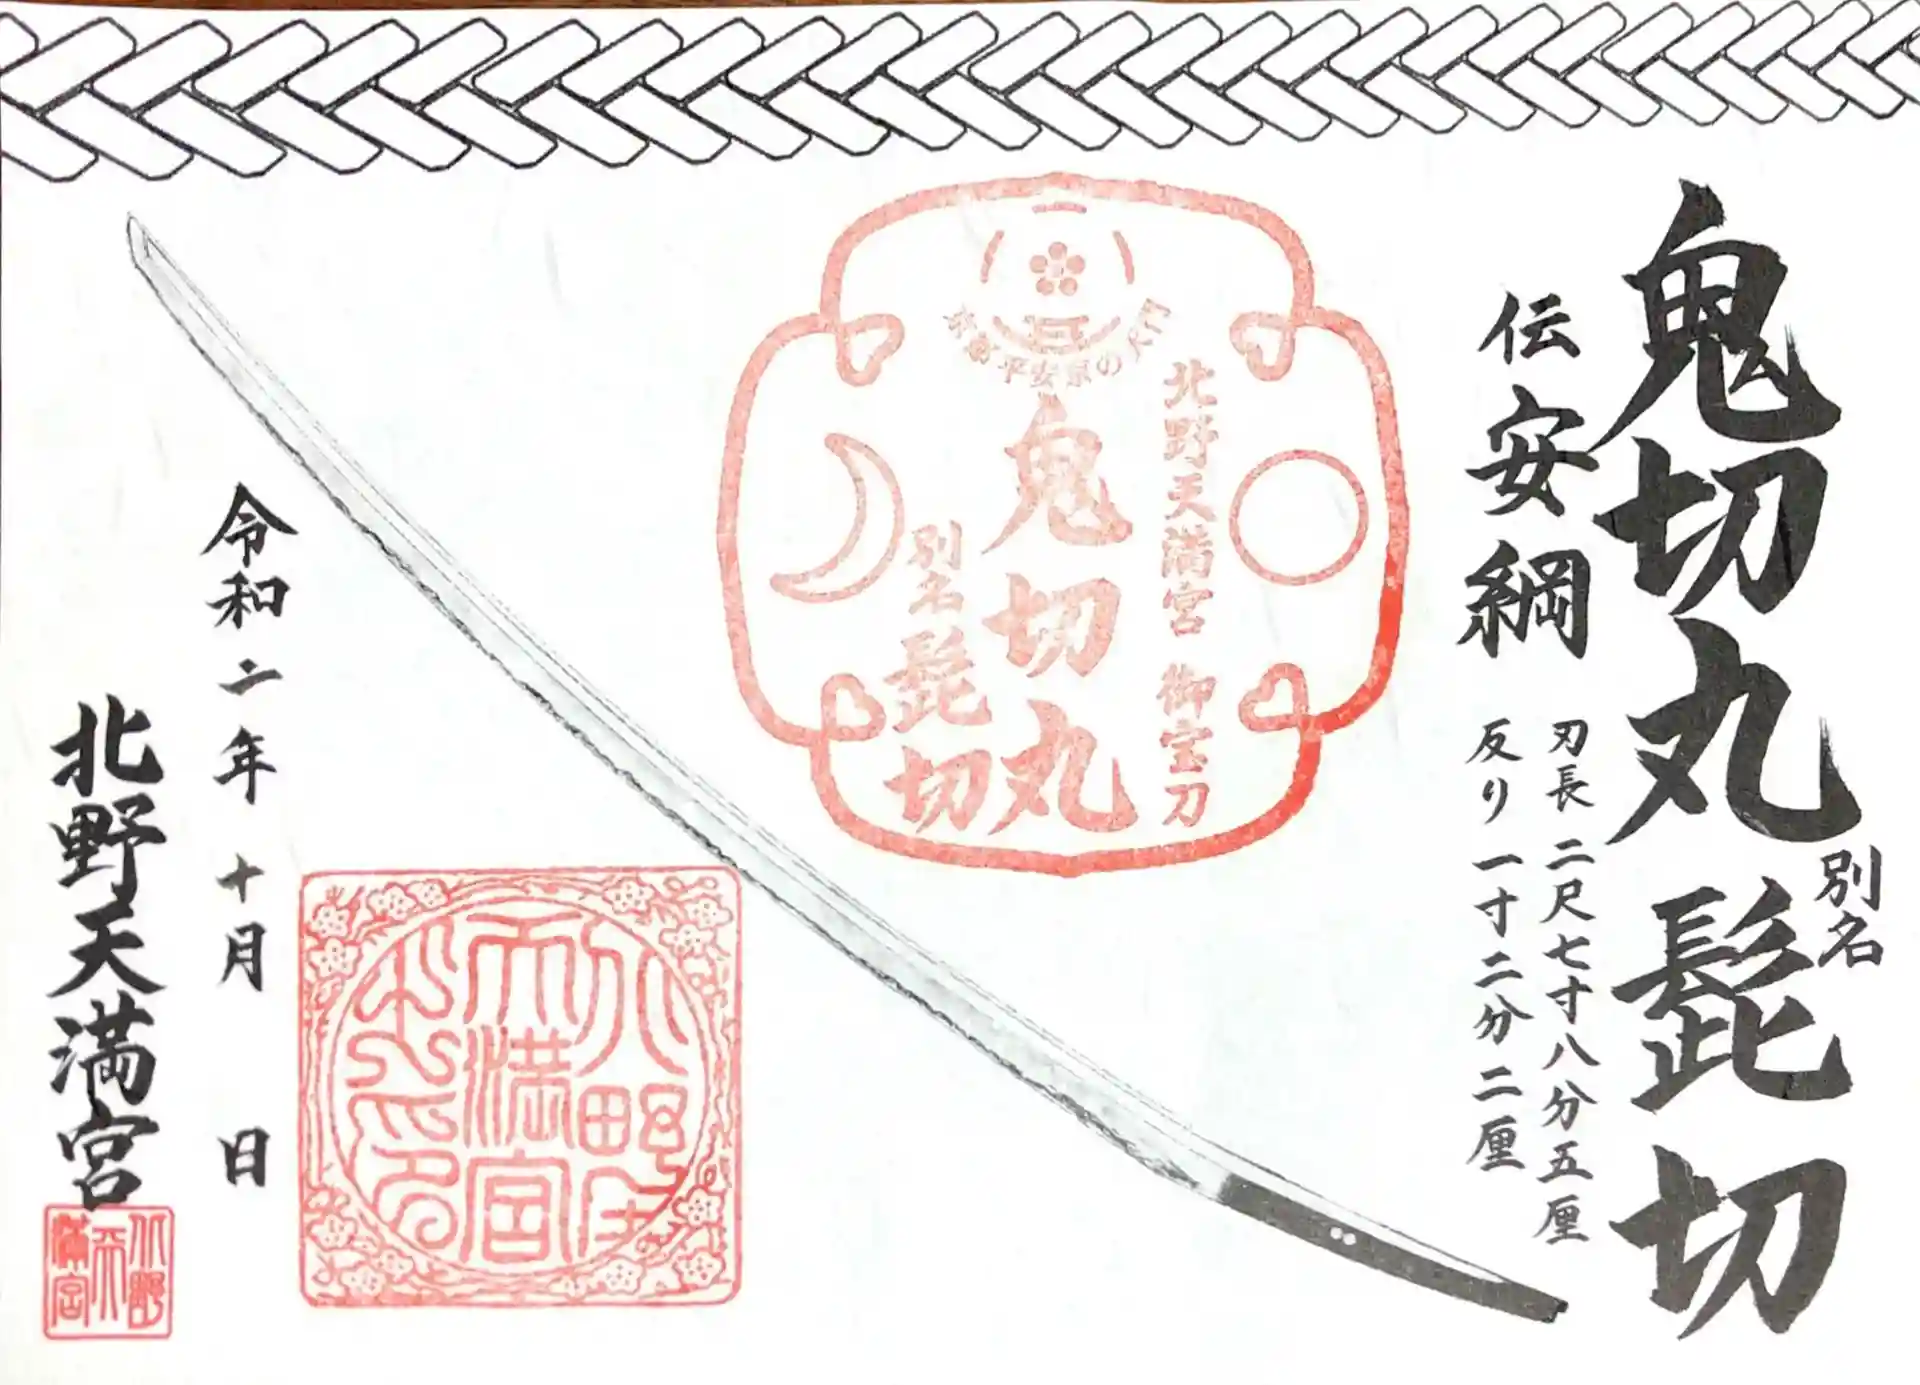 鬼切丸 別名 髭切
伝 安綱
刃長 二尺七寸八分五厘
反り 一寸二分二厘
北野天満宮 御宝刀
鬼切丸
別名 髭切
平安京の
北野天満宮
令和二年十月 日
北野天満宮